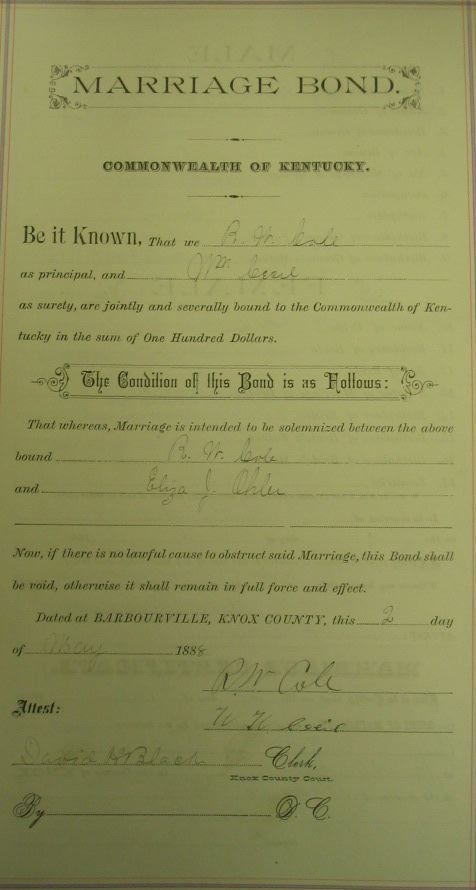 MARRIAGE BOND.
COMMONWEALTH OF KENTUCKY.
Be it Known, That we R. W. Cole
as principal, and Wm. Cecil
as surety, are jointly and severally bound to the Commonwealth of Ken-
tucky in the sum of One Hundred Dollars.
The Condition of this Bond is as Follows:
That whereas, Marriage is intended to be solemnized between the above
bound R. W. Cole
and Eliza J.
Now, if there is no lawful cause to obstruct said Marriage, this Bond shall
be void, otherwise it shall remain in full force and effect.
Dated at BARBOURVILLE, KNOX COUNTY, this 2 day
of May 1888
R. W. Cole
Attest:
Cecil
David Black Clerk,
Knox County Court.
By D. C.